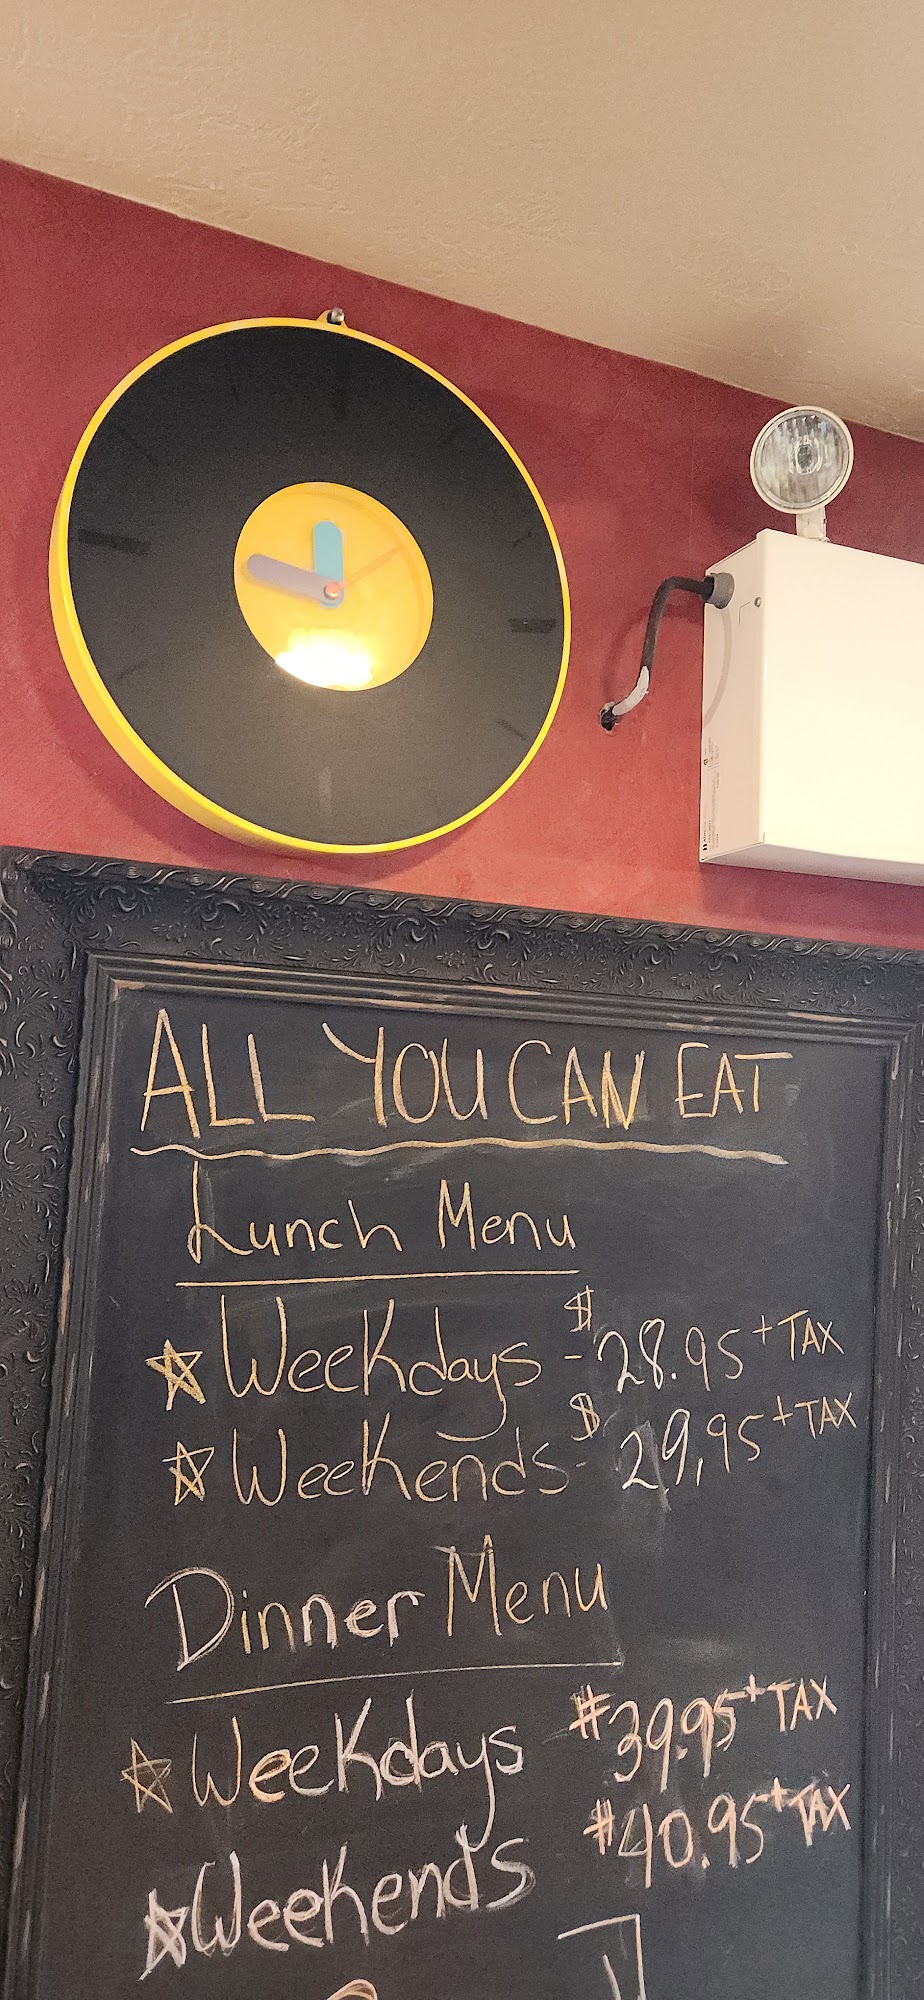 ALL YOU CAN EAT
Lunch Menu
Weekdays - $28.95 + TAX
Weekends - $29,95 + TAX
Dinner Menu
Weekdays #39.95 + TAX
Weekends #40.95 + TAX